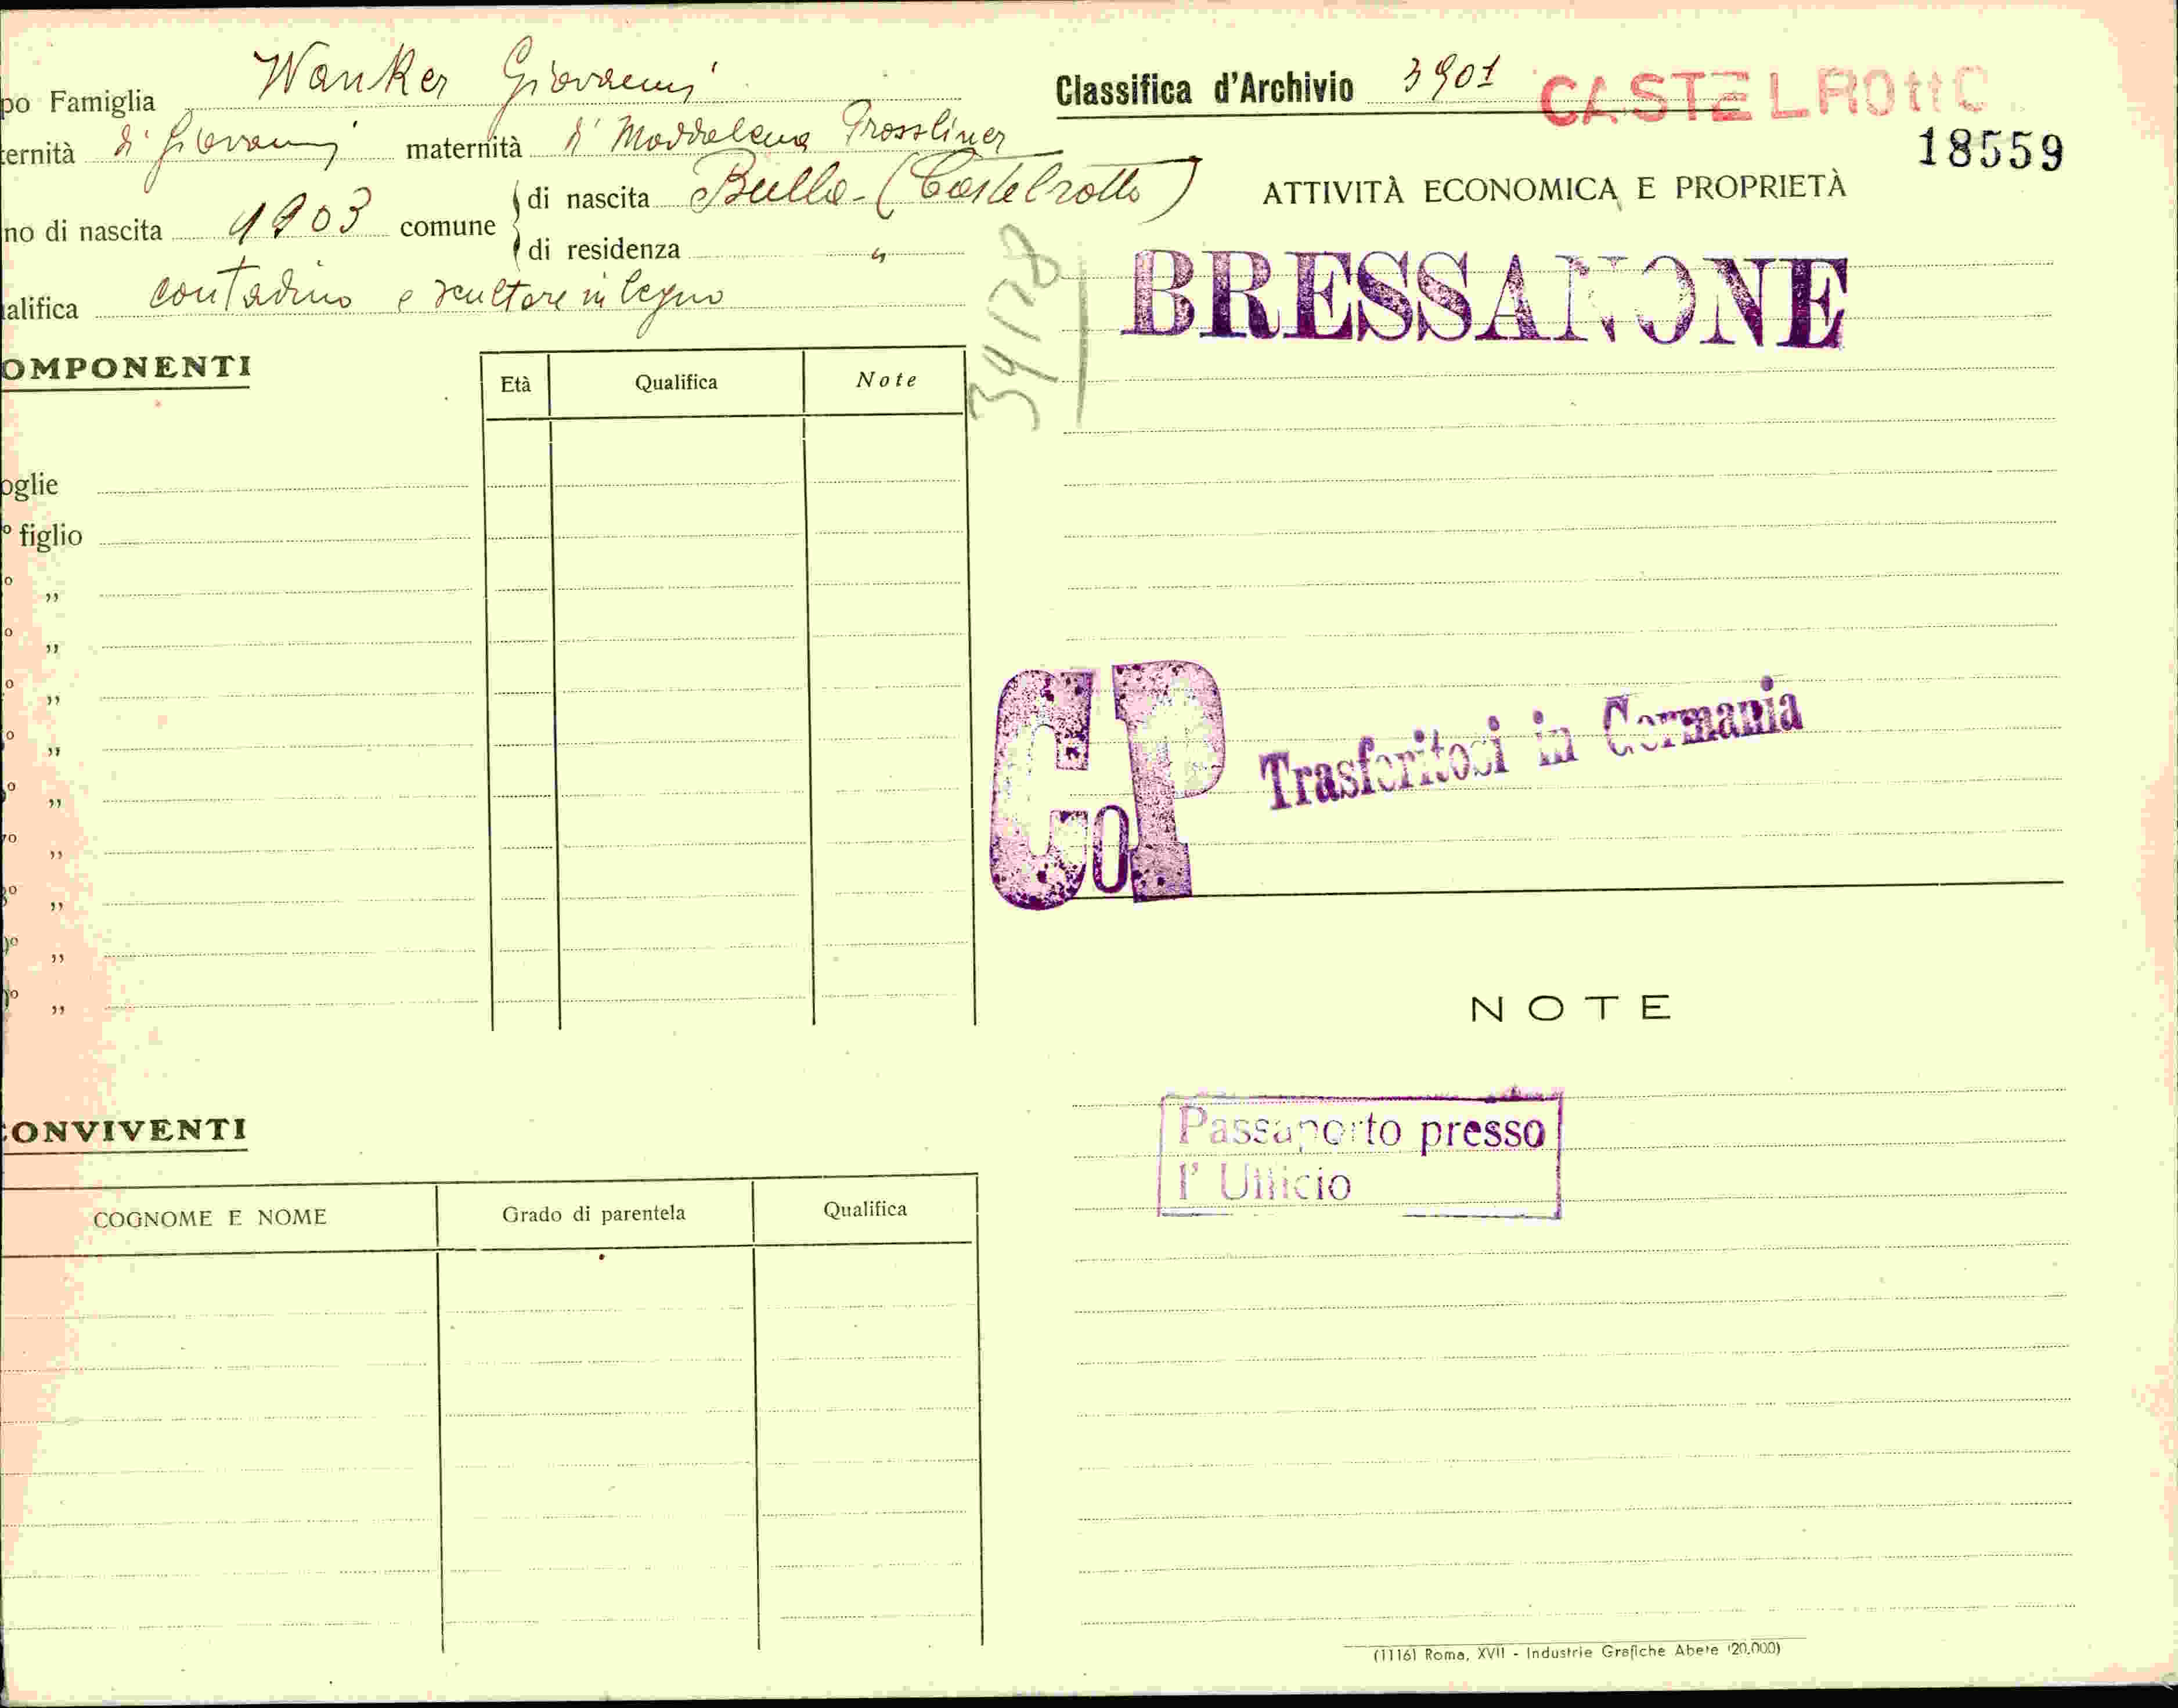 po Famiglia Wanker Giovanni
ternità di Giovanni maternità di Maddalena Prossliner
no di nascita 1903 comune di nascita Bulla - (Castelrotto)
di residenza "
alifica contadino e scultore in legno
OMPONENTI
Età Qualifica Note
oglie
º figlio
º "
º "
º "
º "
º "
7º "
8º "
º "
º "
CONVIVENTI
COGNOME E NOME Grado di parentela Qualifica
Classifica d'Archivio 3901 CASTELROTTO
18559
ATTIVITÀ ECONOMICA E PROPRIETÀ
BRESSANONE
34178
GoP Trasferitosi in Germania
NOTE
Passaporto presso
l' Ufficio
(1116) Roma, XVII - Industrie Grafiche Abete (20.000)